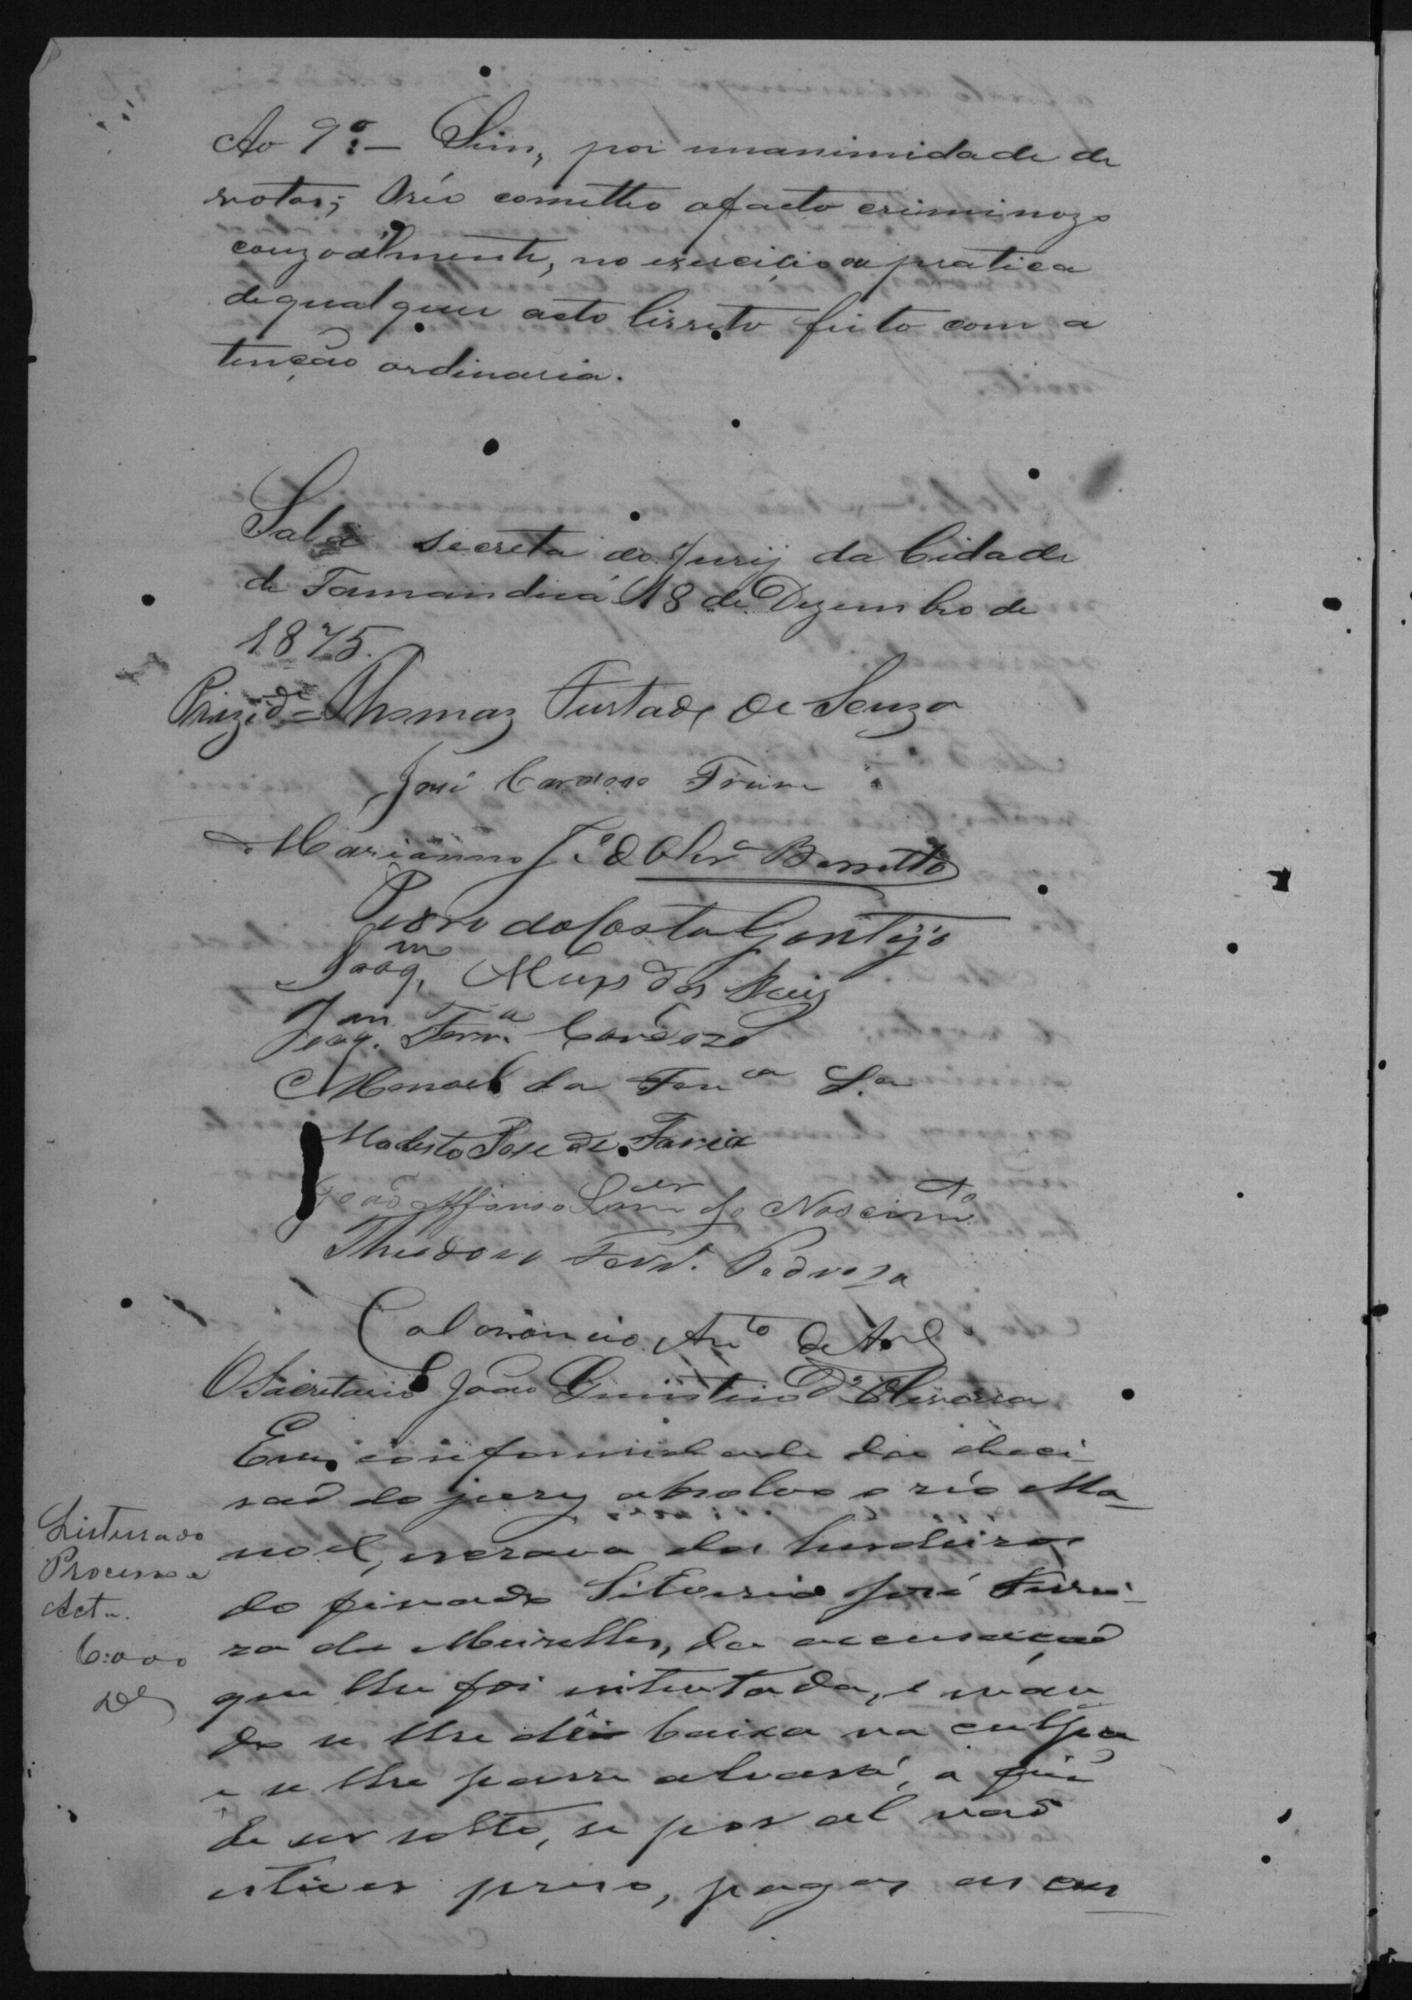 Ao 9º:— Sim, por unanimidade de
votos; Oréo cometteo ofacto criminozo
cauzoalmente, no exercicio ou pratica
dequalquer acto lissito feito com a
tenção ordinaria.
Sala secreta do Jury da Cidade
de Tamanduá 18 de Dezembro de
1875.
Prezid.e = Thomaz Furtado de Souza
José Cardoso Freire
Marianno Jé d Olivra Barretto
Pedro da Costa Gontijo
Joaqm. Alves dos Reis
Joaqm. Ferra. Cardozo
Manoel da Fonca Sa
Modesto Jose de Faria
João Affonso Lamer do Nascimto
Theodoro Ferr. Pedroza
Calorancio Anto de
O Sacretario João Quintino de Oliveira
Em conformidade da deci-
saõ do jury absolvo o réo Ma-
noel, escravo dos herdeiros
do finado Silverio José Ferrei-
ra de Meirelles, da accusaçaõ
que lhe foi intentada, e man
do se lhe dêi baixa na culpa
e se lhe passe alvará, a fim
de ser solto, se por al naõ
estiver preso, pagas as cus
Processo e
Acta.
6:000